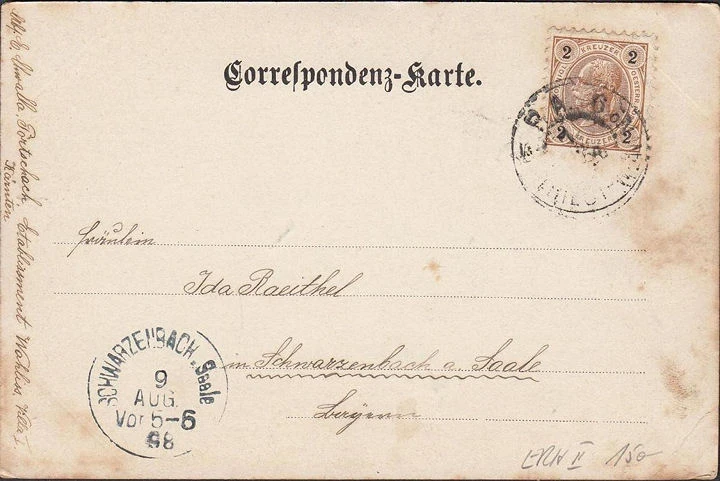 Correspondenz-Karte.
2 KREUZER 2
2 KREUZER 2
Fräulein
Ida Raeithel
in Schwarzenbach a. Saale
Bayern
SCHWARZENBACH, Saale
9
AUG.
Vor 5-6
98
Pörtschach Etablissement Wahliss Villa I
Kärnten
150